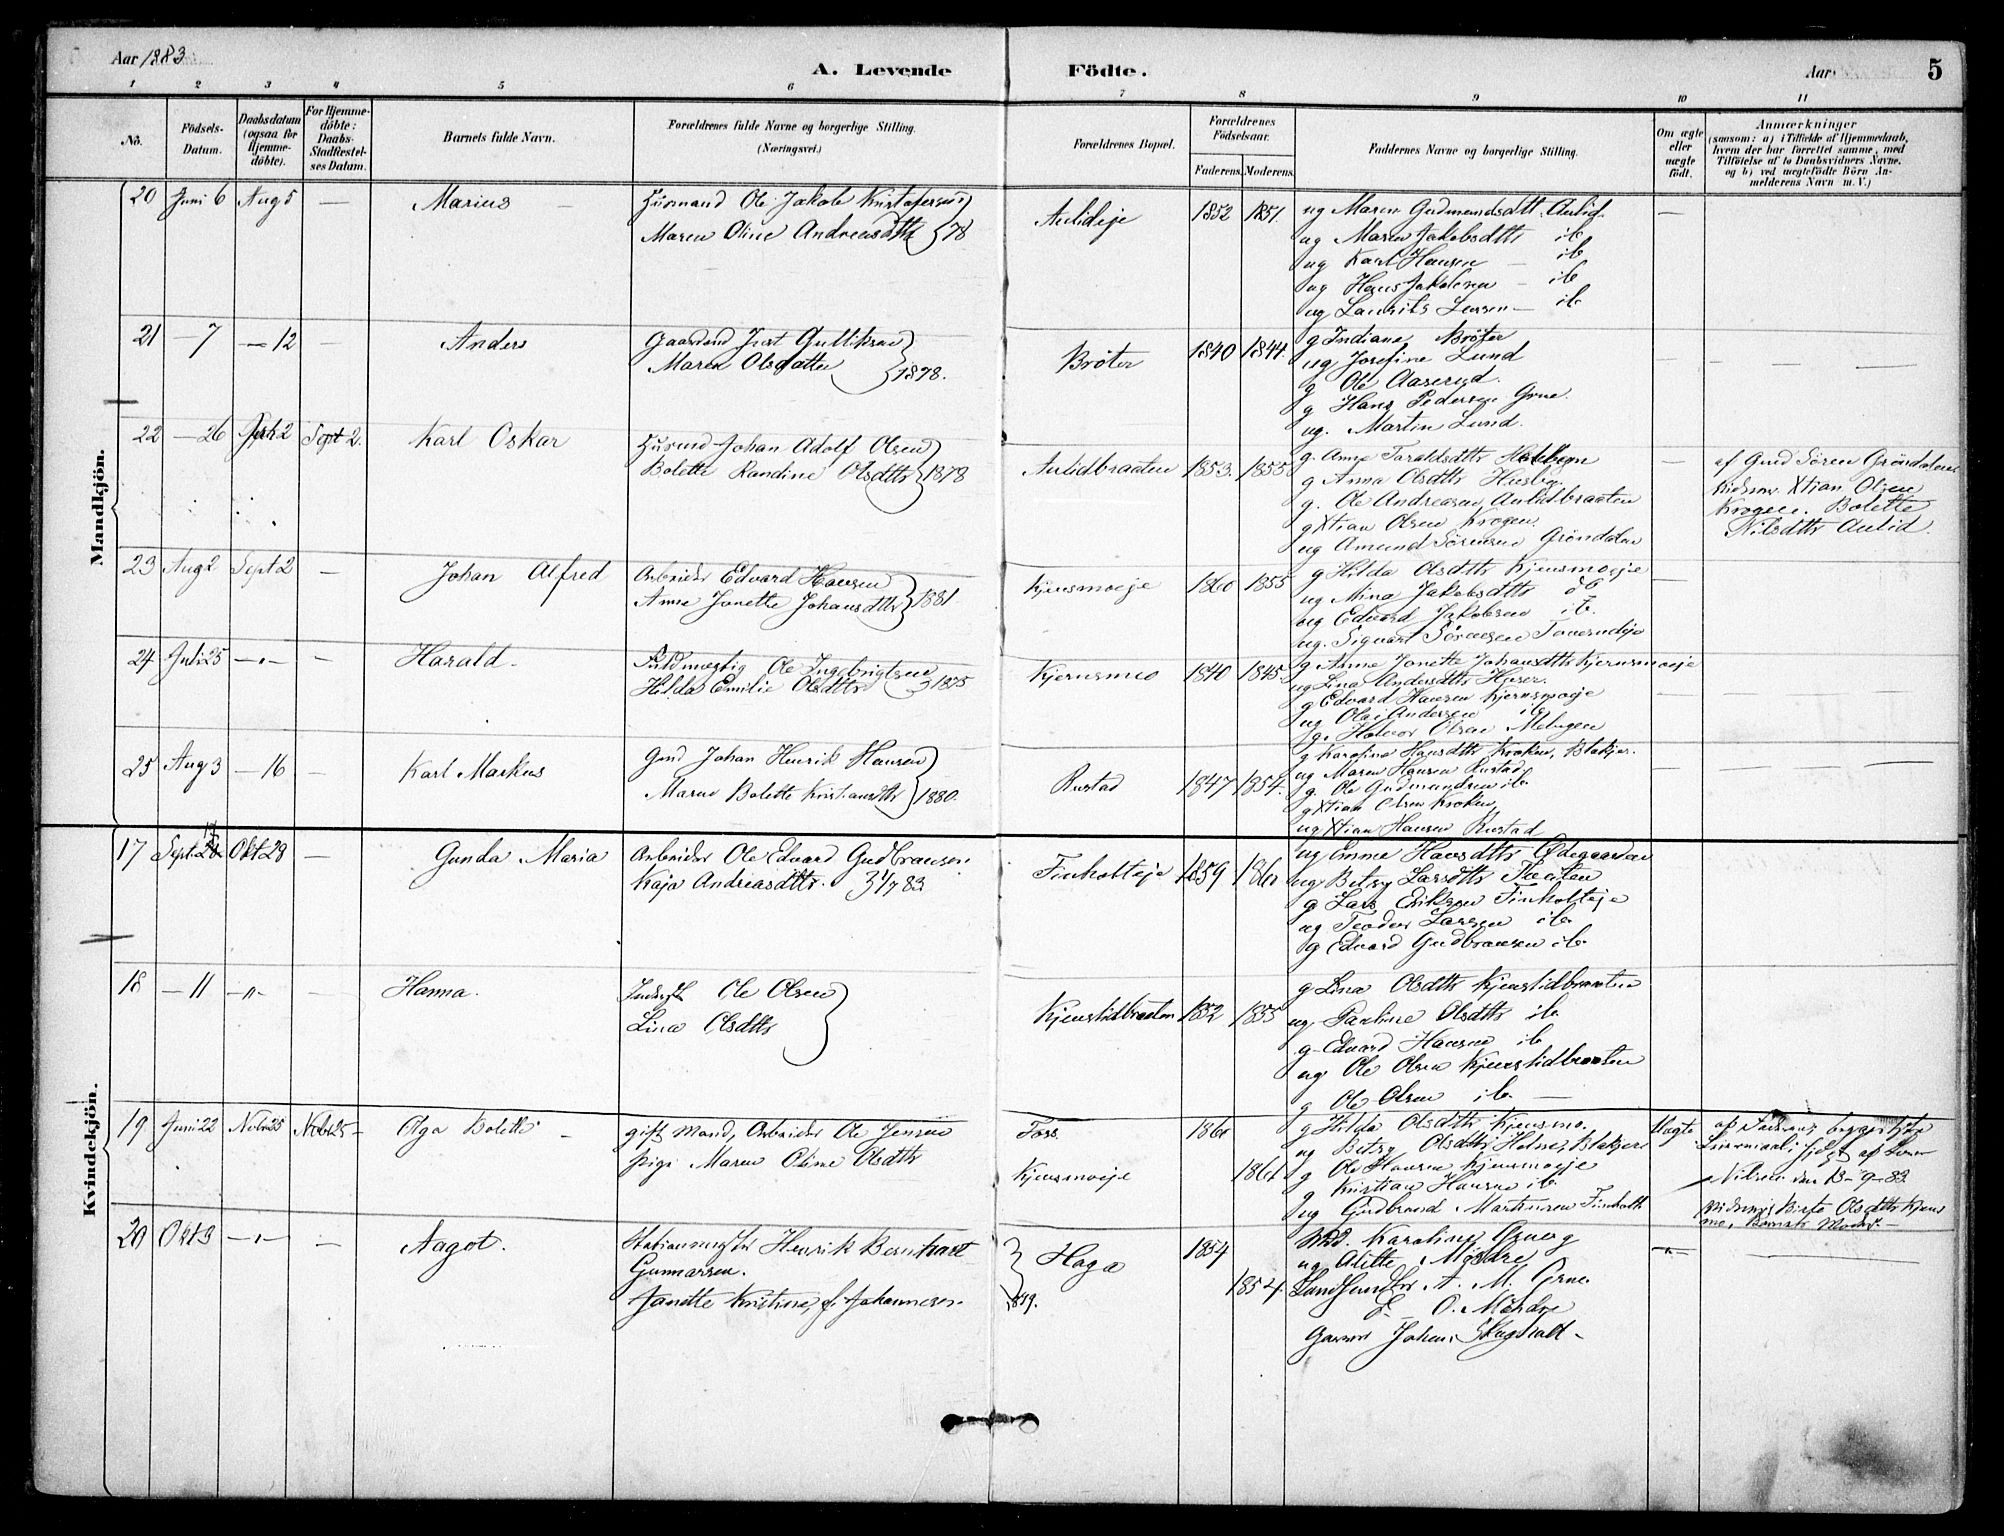 Aar 1883
A. Levende Födte.
Aar
5
1 2 3 4 5 6 7 8 9 10 11
No.
Födsels-Datum.
Daabsdatum (ogsaa for Hjemme-döbte).
For Hjemme-döbte: Daabs-Stadfæstel-ses Datum.
Barnets fulde Navn.
Forældrenes fulde Navne og borgerlige Stilling. (Næringsvei.)
Forældrenes Bopæl.
Forældrenes Födselsaar.
Faderens. Moderens.
Faddernes Navne og borgerlige Stilling.
Om ægte eller uægte födt.
Anmærkninger
(saasom: a) i Tilfælde af Hjemmedaab, hvem der har forrettet samme, med Tilföielse af to Daabsvidners Navne. og b) ved uægtefödte Börn An-melderens Navn m. V.)
Mandkjön.
20 Juni 6 Aug 5 — Marius — Husmand Ole Jakob Kristofersen
Maren Oline Andreasdttr 78
Aulideje 1852 1851.
ug Maren Gudmundsdtt. Aulid
ug Maren Jakobsdttr ib
ug Karl Hansen — ib
ug Hans Jakobsen — ib
ug Laurits Larsen — ib
21 — 7 — 12 — Anders Gaardmd Just Gulliksen
Maren Olsdatter 1878.
Brøter 1840 1844.
g Indiane Brøter
ug Josefine Lund
g Ole Aaserud.
g Hans Pedersen Grue.
ug. Martin Lund.
22 — 26 Sept 2. Karl Oskar Husmd Johan Adolf Olsen
Bolette Randine Olsdttr 1878
Aulidbraaten 1853. 1855.
g. Anne Taraldsdttr
g Anna Olsdttr Huseby
g. Ole Andreasen Aulidbraaten
g Xtian Olsen Krogen.
ug Amund Sørensen Grøndalen
af Gmd Søren Grøndalen
Xtian Olsen
Krogen. Bolette
Nilsdttr Aulid.
23 Aug 2 Sept 2 — Johan Alfred Arbeider Edvard Hansen
Anne Jonette Johansdttr 1881.
Kjensmoeje 1860 1855
g Hilda Olsdttr Kjensmoeje
ug Mina Jakobsdttr
ug Edvard Jakobsen ib.
ug. Sigvart Sørensen
24 Juli 25 —"— — Harald. Fuldmægtig Ole Ingebrigtsen
Hilda Emilie Olsdttr 1875
Kjernsmo 1840 1845.
g Anne Jonette Johansdttr Kjernsmoeje
ug Lina Andersdttr
g Edvard Hansen Kjernsmoeje
ug Olai Andersen ib
g. Halvor Olsen
25 Aug 3 — 16 — Karl Markus Gmd Johan Henrik Hansen
Maren Bolette Kristiansdttr 1880.
Rustad 1847 1854.
g Karoline Hansdttr Kroken, Blakjer.
ug Maren Hansen Rustad
g. Ole Gudmundsen ib.
g Xtian Olsen Kroken,
ug Xtian Hansen Rustad
Kvindekjön.
17 Sept. Okt 28 — Gunda Maria Arbeider Ole Edvard Gudbransen
Kaja Andreasdttr. 83
Finholteje 1859 1861
ug Emma Hansdttr Ødegaarden
ug Betsy Larsdttr
g Lars Eriksen Finholteje
ug Teodor Larsen ib.
g Edvard Gudbransen ib.
18 — 11 —"— Hanna. Inderst Ole Olsen
Lina Olsdttr
Kjenstidbraaten 1852 1855
g Lina Olsdttr Kjenstidbraaten
ug. Pauline Olsdttr ib.
g. Edvard Hansen ib
ug Ole Olsen Kjenstidbraaten
g Ole Olsen ib. —
19 Juni 22 Novbr 25 Nvbr 25 — Olga Bolette — gift Mand, Arbeider Ole Jensen
pige Maren Oline Olsdttr
Foss.
Kjensmoeje
1861
1861
g Hilda Olsdttr Kjensmo.
ug Betsy Olsdttr Blakjer
g Ole Hansen Kjensmoeje
g Kristian Hansen ib.
ug Gudbrand Martinsen Finholt
Uægte
Nilsen den 13-9-83
Olsdttr Kjens
mo, Barnets Moder. —
20 Okt 3 —"— — Aagot. Stationsmester Henrik Bernhard
Gunnarsen.
Janette Kristine f. Johannesen.
Haga
1849.
1854
1854.
Mad. Karoline
ug Alette Møhdre
A. M. Grue.
O. Møhdre
Johan Skugstad —
—"—